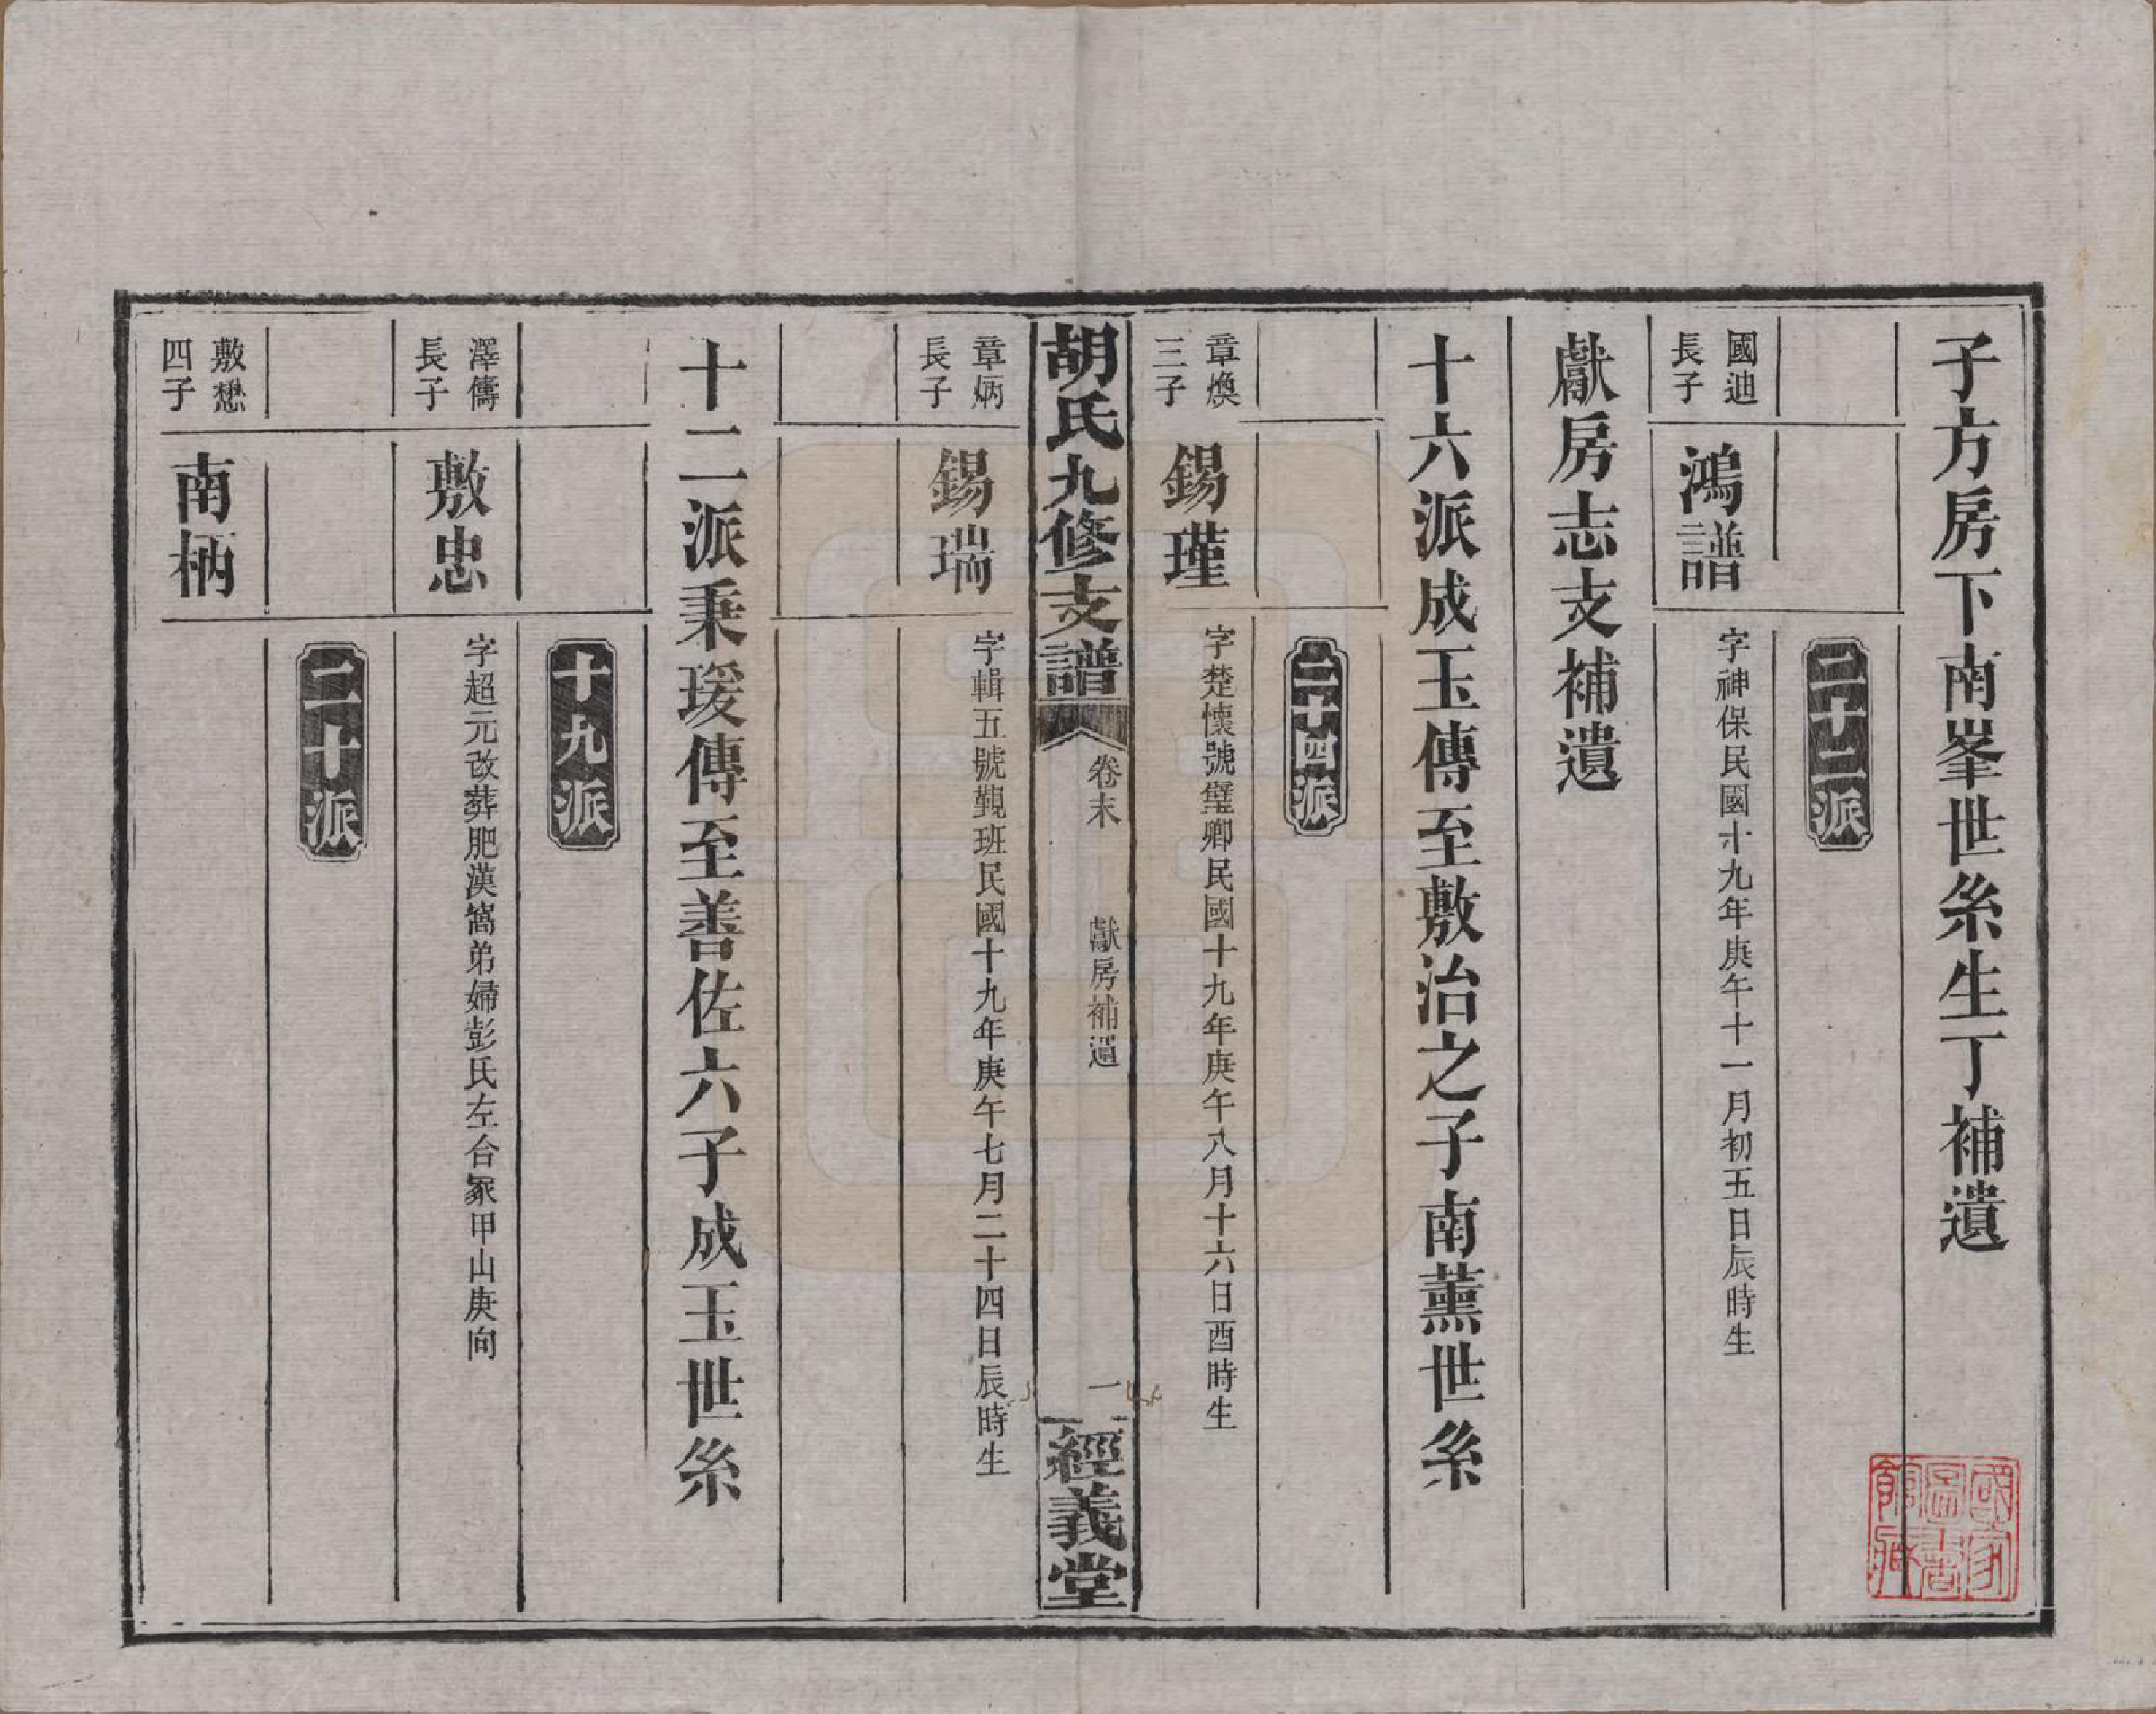 子方房下南峯世系生丁補遺
二十二派
國迪長子
鴻譜
字神保民國十九年庚午十一月初五日辰時生
獻房志支補遺
十六派成玉傳至敷治之子南薰世系
二十四派
章煥三子
錫瑾
字楚懷號瑩卿民國十九年庚午八月十六日酉時生
胡氏九修支譜
卷末
獻房補遺
一
經義堂
章炳長子
錫瑞
字輯五號觐班民國十九年庚午七月二十四日辰時生
十二派秉瑗傳至善佐六子成玉世系
十九派
澤儔長子
敷忠
字超元改葬肥漢窩弟婦彭氏左合冢甲山庚向
二十派
敷懋四子
南柄
國家圖書館藏